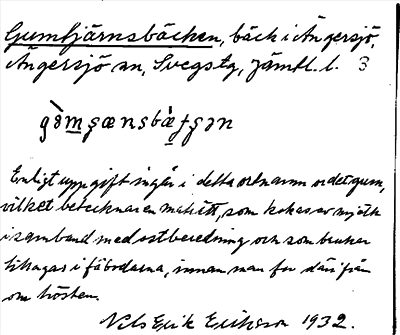 Gumtjärnsbäcken, bäck i Ängersjö,
Ängersjö sn, Svegs tg, Jämtl. l. 3
Enligt uppgift ingår i detta ortnamn ordet gum,
vilket betecknar en maträtt, som kokas av mjölk
i samband med ostberedning och som brukar
tillagas i fäbodarna, innan man far därifrån
om hösten.
Nils Erik Eriksson 1932.